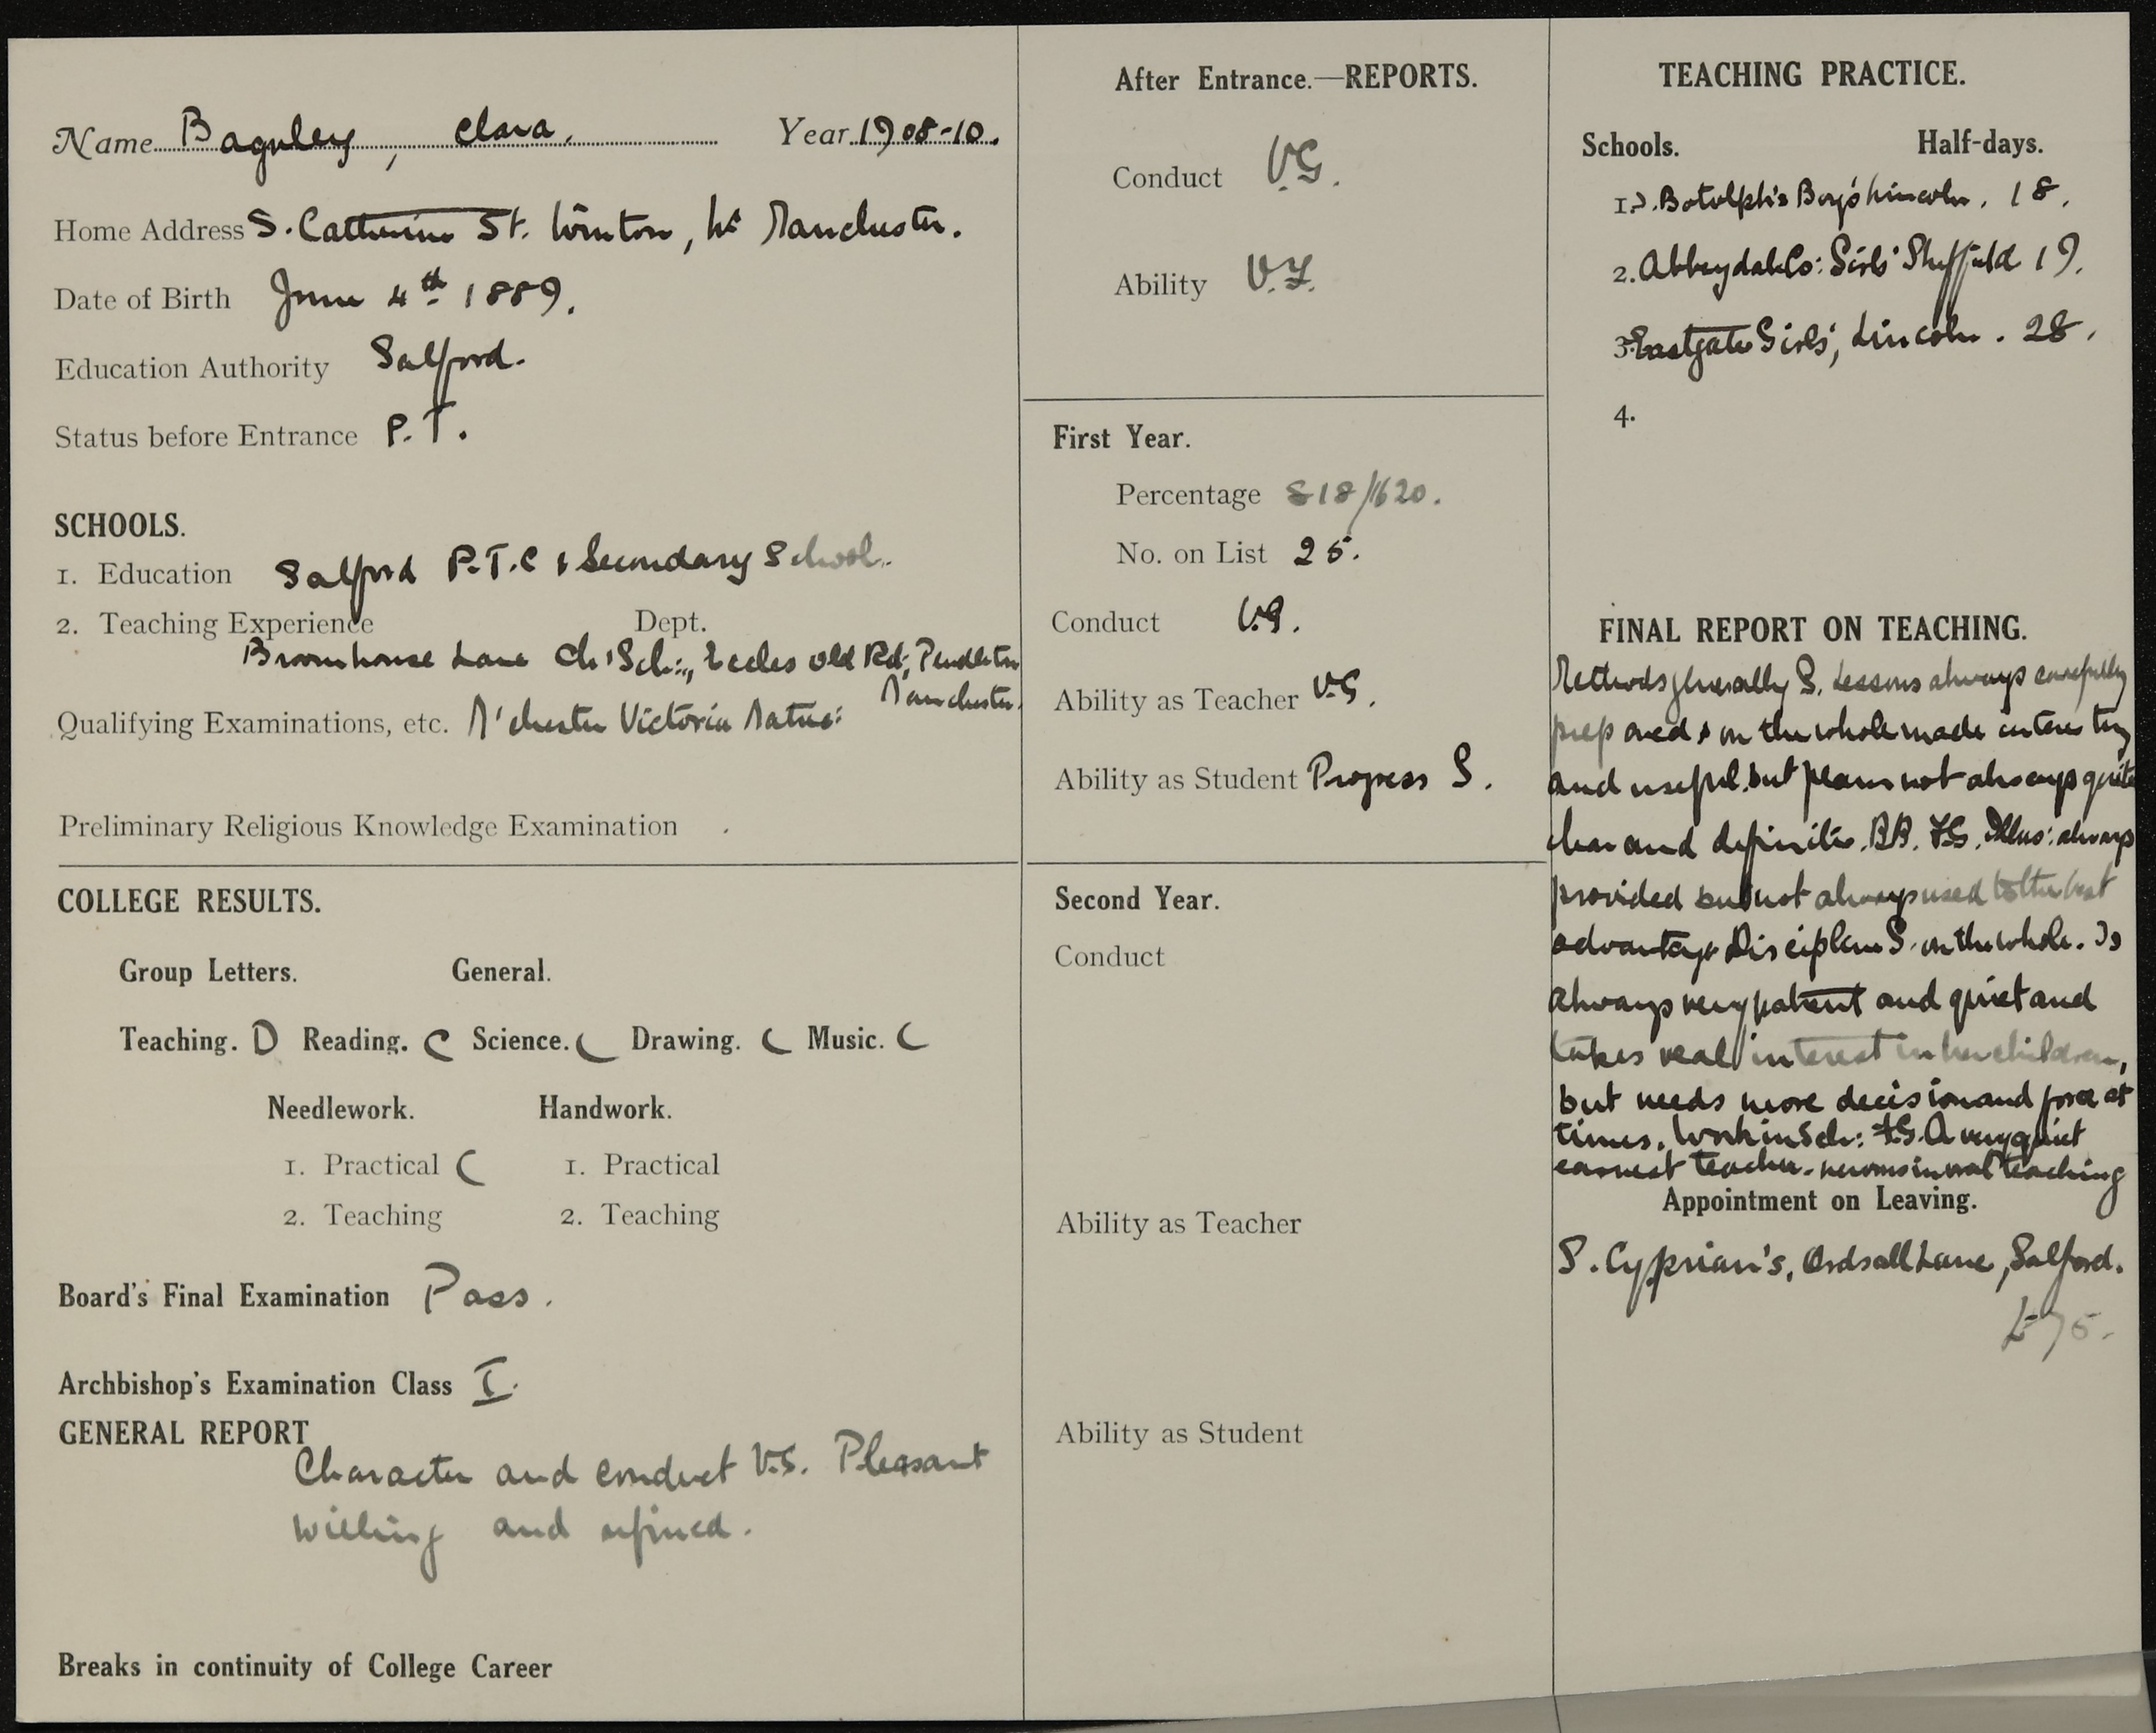 Name Baguley, Clara. Year 1908-10.
Home Address S. Catherine St. Winton, Nr Manchester.
Date of Birth June 4th 1889.
Education Authority Salford.
Status before Entrance P.T.
SCHOOLS.
1. Education Salford P.T.C & Secondary School.
2. Teaching Experience Dept.
Broomhouse Lane Ch: Sch:, Eccles Old Rd; Pendleton
Manchester.
Qualifying Examinations, etc. M'chester Victoria Matric:
Preliminary Religious Knowledge Examination
COLLEGE RESULTS.
Group Letters. General.
Teaching. D Reading. C Science. C Drawing. C Music. C
Needlework. Handwork.
1. Practical C 1. Practical
2. Teaching 2. Teaching
Board's Final Examination Pass.
Archbishop's Examination Class I.
GENERAL REPORT
Character and conduct V.G. Pleasant
willing and refined.
Breaks in continuity of College Career
After Entrance.—REPORTS.
Conduct V.G.
Ability V.F.
First Year.
Percentage 818/1620.
No. on List 25.
Conduct V.G.
Ability as Teacher V.G.
Ability as Student Progress G.
Second Year.
Conduct
Ability as Teacher
Ability as Student
TEACHING PRACTICE.
Schools. Half-days.
1. S. Botolph's Boys' Lincoln. 18.
2. Abbeydale Co: Girls' Sheffield 19.
3. Eastgate Girls', Lincoln. 28.
4.
FINAL REPORT ON TEACHING.
Methods generally G. Lessons always carefully
prepared & on the whole made interesting
and useful but plans not always quite
clear and definite. BB. F.G. Illus: always
provided but not always used to the best
advantage Discipline G. on the whole. Is
always very patient and quiet and
takes real interest in her children,
but needs more decision and force at
times. Work in Sch: F.G. A very quiet
earnest teacher. nervous in oral teaching
Appointment on Leaving.
S. Cyprian's, Ordsall Lane, Salford.
£75.